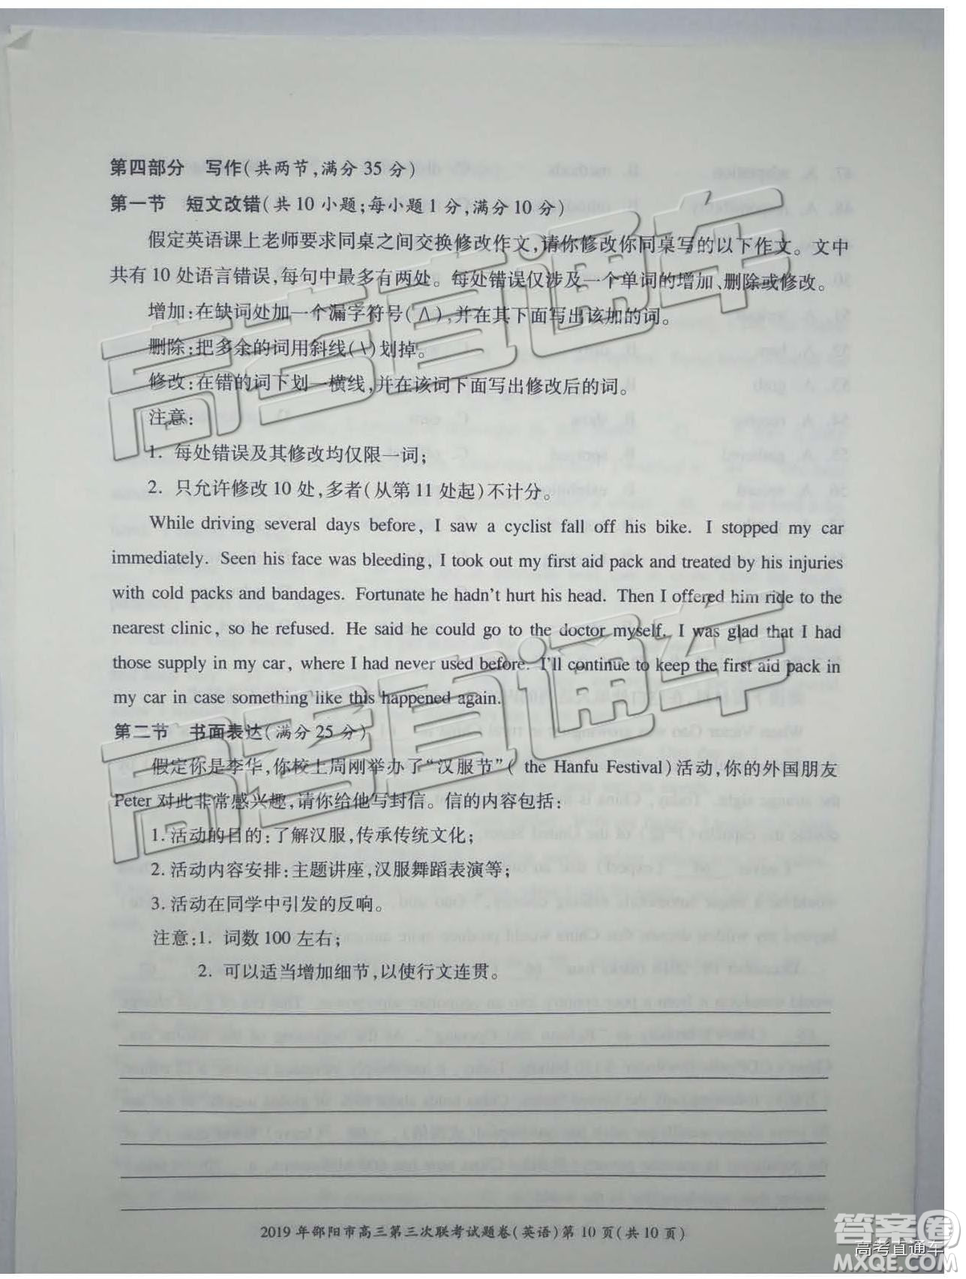 第四部分 写作(共两节,满分35分)
第一节 短文改错(共10小题;每小题1分,满分10分)
假定英语课上老师要求同桌之间交换修改作文,请你修改你同桌写的以下作文。文中
共有10处语言错误,每句中最多有两处。每处错误仅涉及一个单词的增加、删除或修改。
增加:在缺词处加一个漏字符号(∧),并在其下面写出该加的词。
删除:把多余的词用斜线(\)划掉。
修改:在错的词下划一横线,并在该词下面写出修改后的词。
注意:
1. 每处错误及其修改均仅限一词;
2. 只允许修改10处,多者(从第11处起)不计分。
While driving several days before, I saw a cyclist fall off his bike. I stopped my car
immediately. Seen his face was bleeding, I took out my first aid pack and treated by his injuries
with cold packs and bandages. Fortunate he hadn't hurt his head. Then I offered him ride to the
nearest clinic, so he refused. He said he could go to the doctor myself. I was glad that I had
those supply in my car, where I had never used before. I'll continue to keep the first aid pack in
my car in case something like this happened again.
第二节 书面表达(满分25分)
假定你是李华,你校上周刚举办了“汉服节”( the Hanfu Festival)活动,你的外国朋友
Peter对此非常感兴趣,请你给他写封信。信的内容包括:
1.活动的目的:了解汉服,传承传统文化;
2.活动内容安排:主题讲座,汉服舞蹈表演等;
3.活动在同学中引发的反响。
注意:1. 词数100左右;
2. 可以适当增加细节,以使行文连贯。
2019年邵阳市高三第三次联考试题卷(英语)第10页(共10页)
高考直通车
高考直通车
答案圈
高考直通车
MXQE.COM